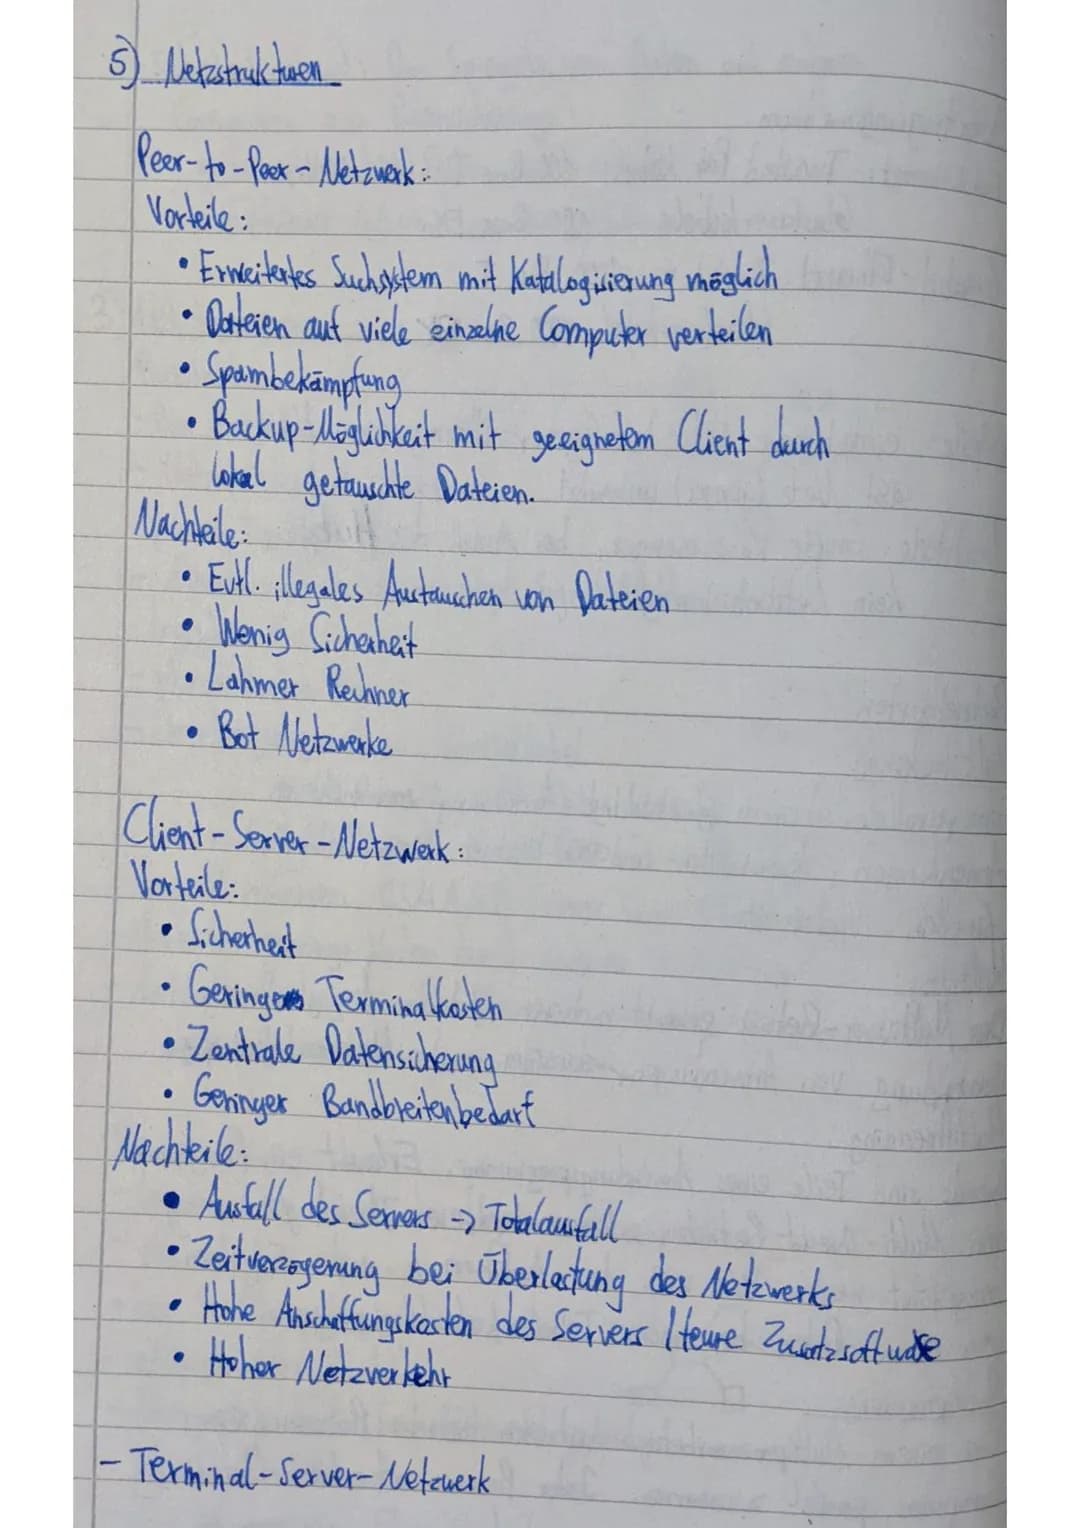 5) Netzstrukturen
Peer-to-Peer-Netzwerk:
Vorteile:
• Erweitertes Suchsystem mit Katalogisierung möglich
• Dateien auf viele einzelne Computer verteilen
• Spambekämpfung
• Backup-Möglichkeit mit geeignetem Client durch
lokal getauschte Dateien.
Nachteile:
• Evtl. illegales Austauschen von Dateien
• Wenig Sicherheit
• Lahmer Rechner
• Bot Netzwerke
Client-Server-Netzwerk:
Vorteile:
• Sicherheit
• Geringere Terminalkosten
• Zentrale Datensicherung
• Geringer Bandbreitenbedarf
Nachteile:
• Ausfall des Servers -> Totalausfall
• Zeitverzögerung bei Überlastung des Netzwerks
• Hohe Anschaffungskosten des Servers / teure Zusatzsoftware
• Hoher Netzverkehr
- Terminal-Server-Netzwerk